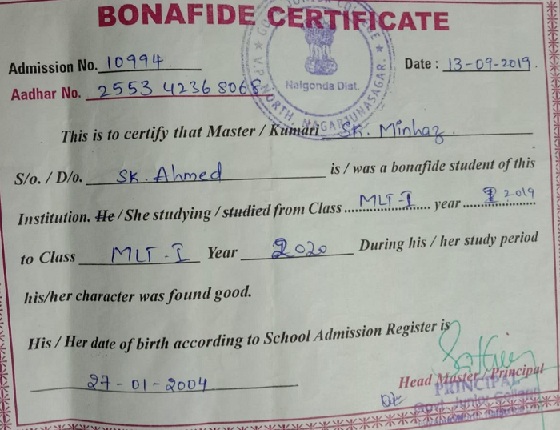 BONAFIDE CERTIFICATE
Admission No. 10994 Date : 13-09-2019.
Aadhar No. 2553 4236 5068
Nalgonda Dist.
V.P. NORTH, NAGARJUNASAGAR.
This is to certify that Master / Kumari SK. Minhaz
S/o. / D/o. SK. Ahmed is / was a bonafide student of this
Institution. He / She studying / studied from Class MLT-I year 2019
to Class MLT-I Year 2020 During his / her study period
his/her character was found good.
His / Her date of birth according to School Admission Register is
27-01-2004
Head Master / Principal
PRINCIPAL